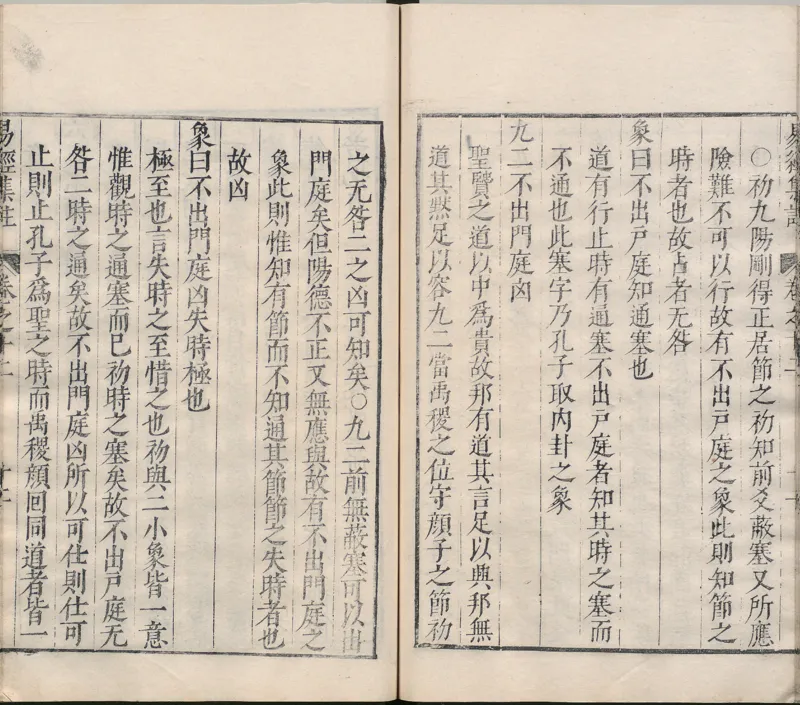 ○初九陽剛得正居節之初知前爻蔽塞又所應
險難不可以行故有不出戸庭之象此則知節之
時者也故占者无咎
象曰不出戸庭知通塞也
道有行止時有通塞不出戸庭者知其時之塞而
不通也此塞字乃孔子取內卦之象
九二不出門庭凶
聖賢之道以中爲貴故邦有道其言足以興邦無
道其黙足以容九二當禹稷之位守顔子之節初
之无咎二之凶可知矣○九二前無蔽塞可以出
門庭矣但陽德不正又無應與故有不出門庭之
象此則惟知有節而不知通其節節之失時者也
故凶
象曰不出門庭凶失時極也
極至也言失時之至惜之也初與二小象皆一意
惟觀時之通塞而已初時之塞矣故不出戸庭无
咎二時之通矣故不出門庭凶所以可仕則仕可
止則止孔子爲聖之時而禹稷顔回同道者皆一
易經集註 卷之十二